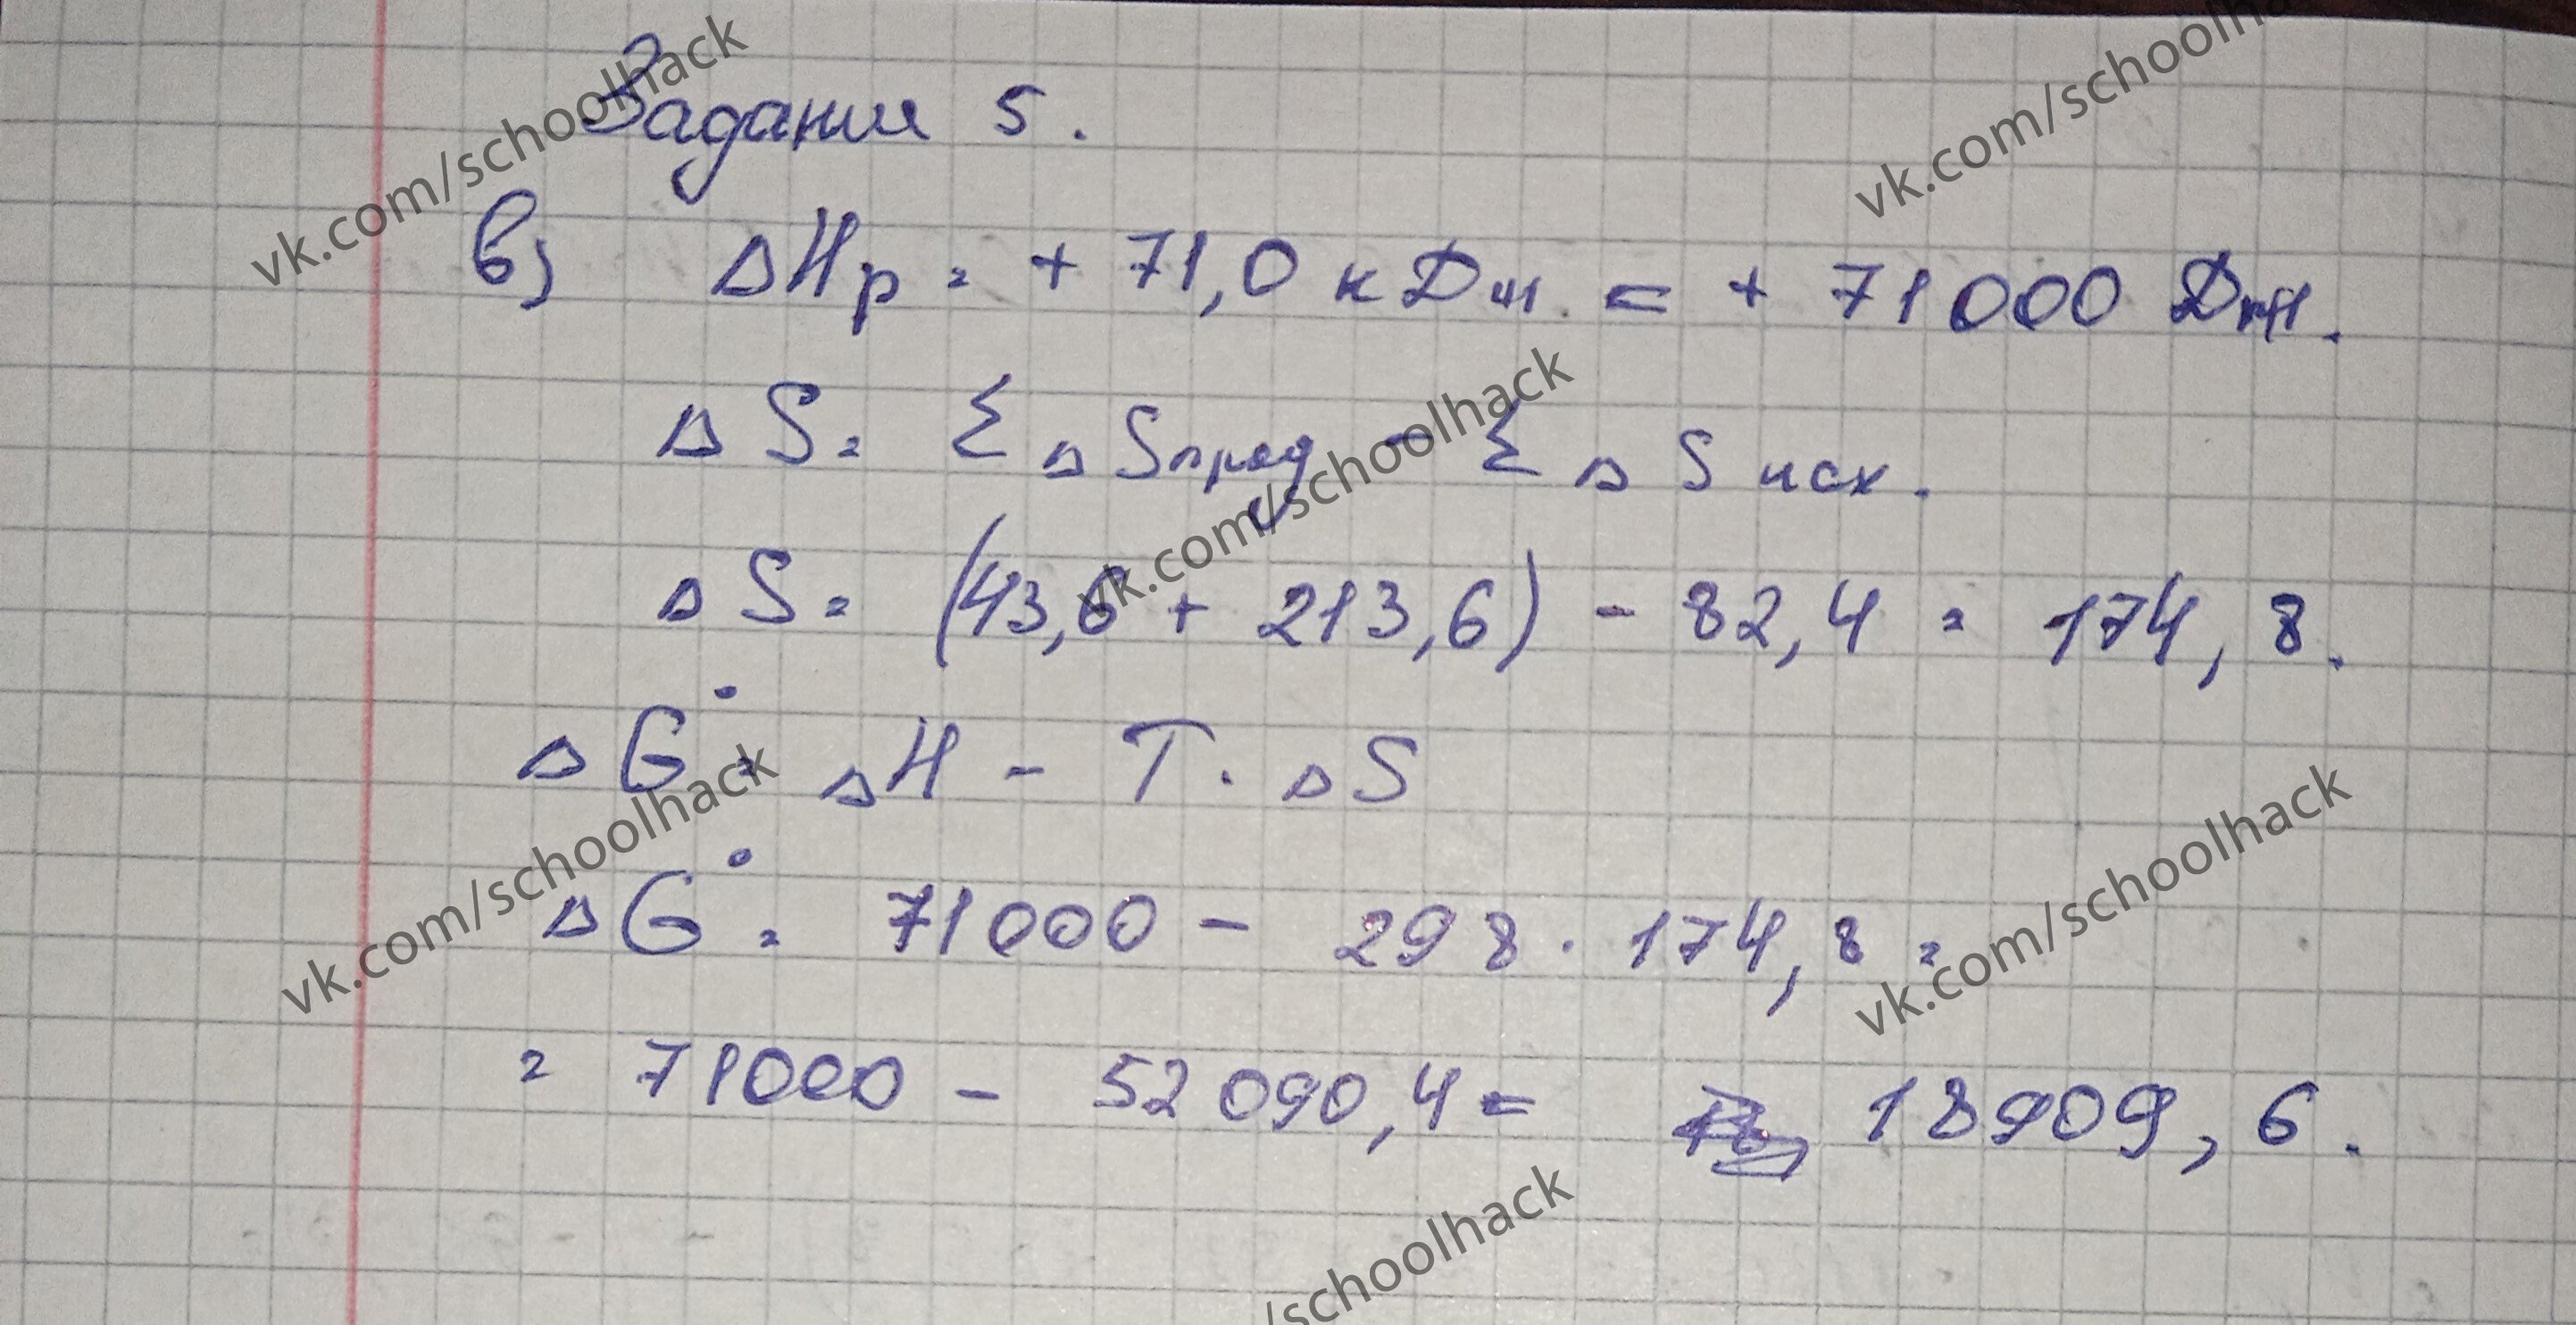 Задание 5.
в) ΔHр = + 71,0 кДж. = + 71000 Дж.
ΔS = Σ ΔSпрод - Σ ΔS исх.
ΔS = (43,6 + 213,6) - 82,4 = 174,8.
ΔG° = ΔH - T · ΔS
ΔG° = 71000 - 298 · 174,8 =
= 71000 - 52090,4 = 18909,6.
vk.com/schoolhack
vk.com/schoolha
vk.com/schoolhack
vk.com/schoolhack
vk.com/schoolhack
/schoolhack